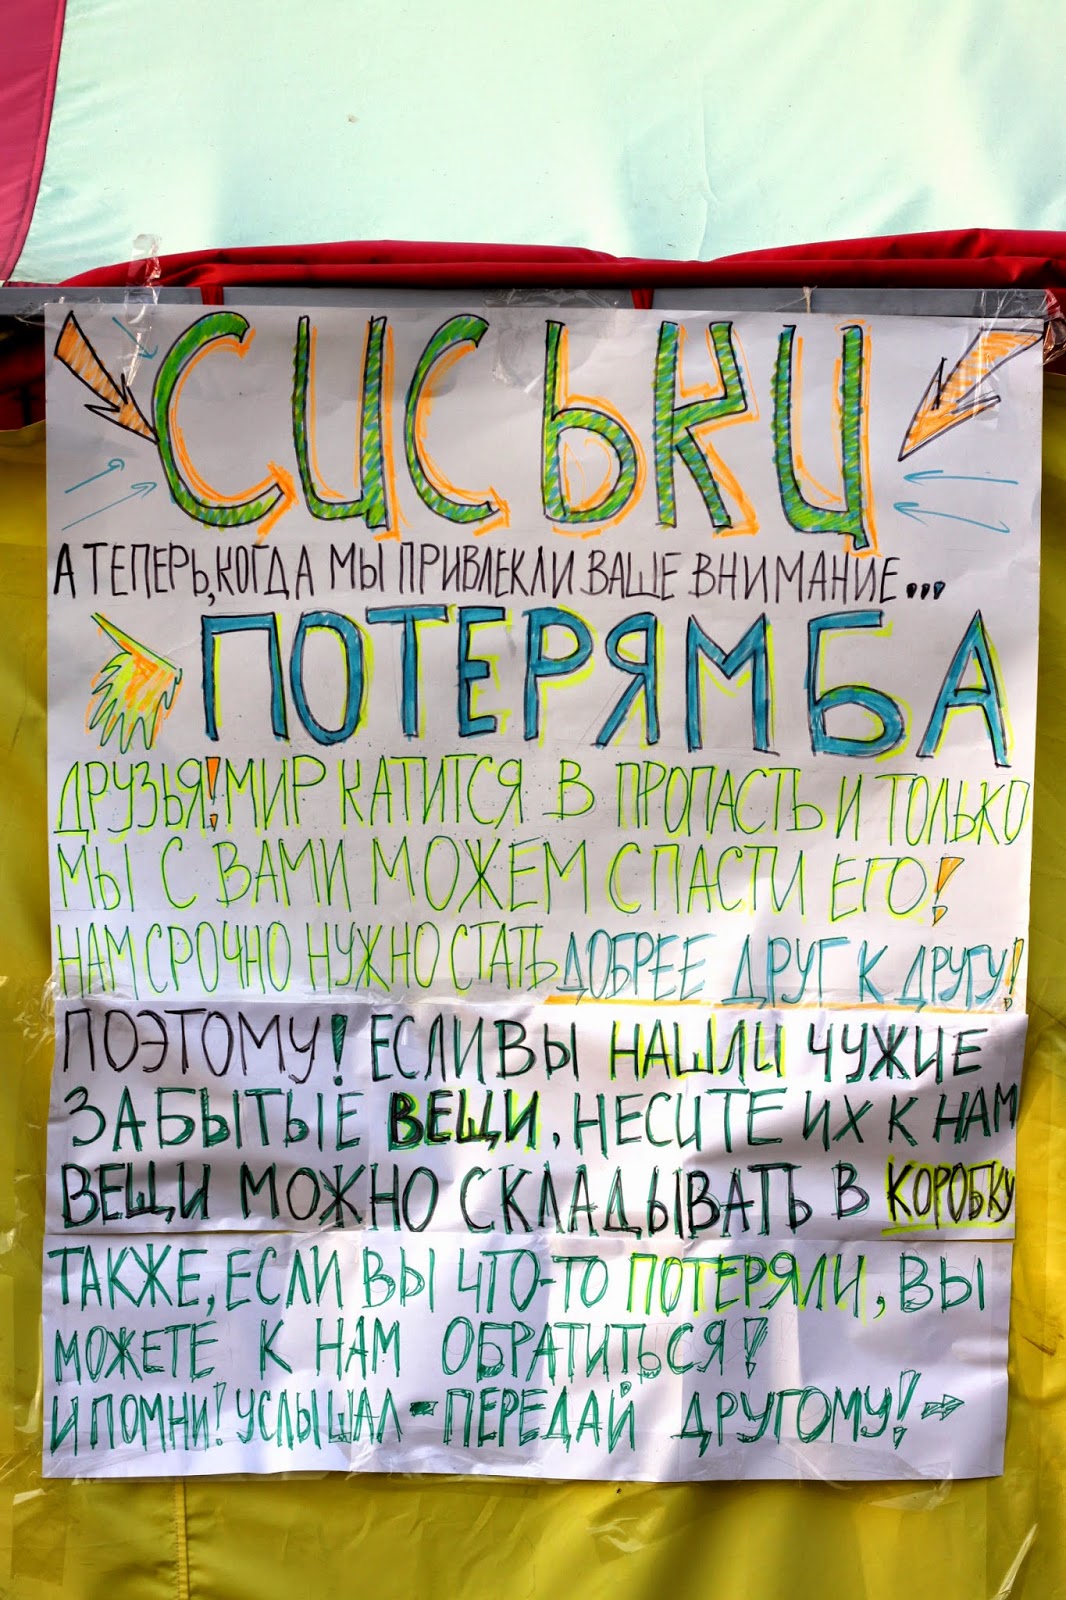 СИСЬКИ
А ТЕПЕРЬ, КОГДА МЫ ПРИВЛЕКЛИ ВАШЕ ВНИМАНИЕ...
ПОТЕРЯМБА
ДРУЗЬЯ! МИР КАТИТСЯ В ПРОПАСТЬ И ТОЛЬКО
МЫ С ВАМИ МОЖЕМ СПАСТИ ЕГО!
НАМ СРОЧНО НУЖНО СТАТЬ ДОБРЕЕ ДРУГ К ДРУГУ!
ПОЭТОМУ! ЕСЛИ ВЫ НАШЛИ ЧУЖИЕ
ЗАБЫТЫЕ ВЕЩИ, НЕСИТЕ ИХ К НАМ
ВЕЩИ МОЖНО СКЛАДЫВАТЬ В КОРОБКУ
ТАКЖЕ, ЕСЛИ ВЫ ЧТО-ТО ПОТЕРЯЛИ, ВЫ
МОЖЕТЕ К НАМ ОБРАТИТЬСЯ!
И ПОМНИ! УСЛЫШАЛ - ПЕРЕДАЙ ДРУГОМУ!